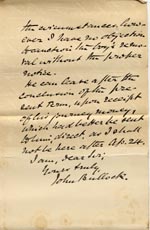 the circumstances, how-
ever I have no objection
to sanction the boy's remo-
val without the proper
notice.
He can leave after the
conclusion of the pre-
sent term, upon receipt
of his journey money,
which had better be sent
to him, direct, as I shall
not be here after Sep. 24.
I am, dear sir,
Yours truly
John Bullock.